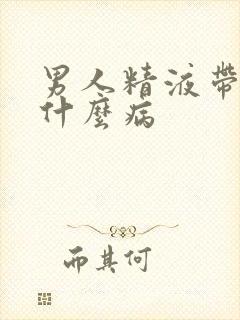 男人精液帶
什麼病
而其何